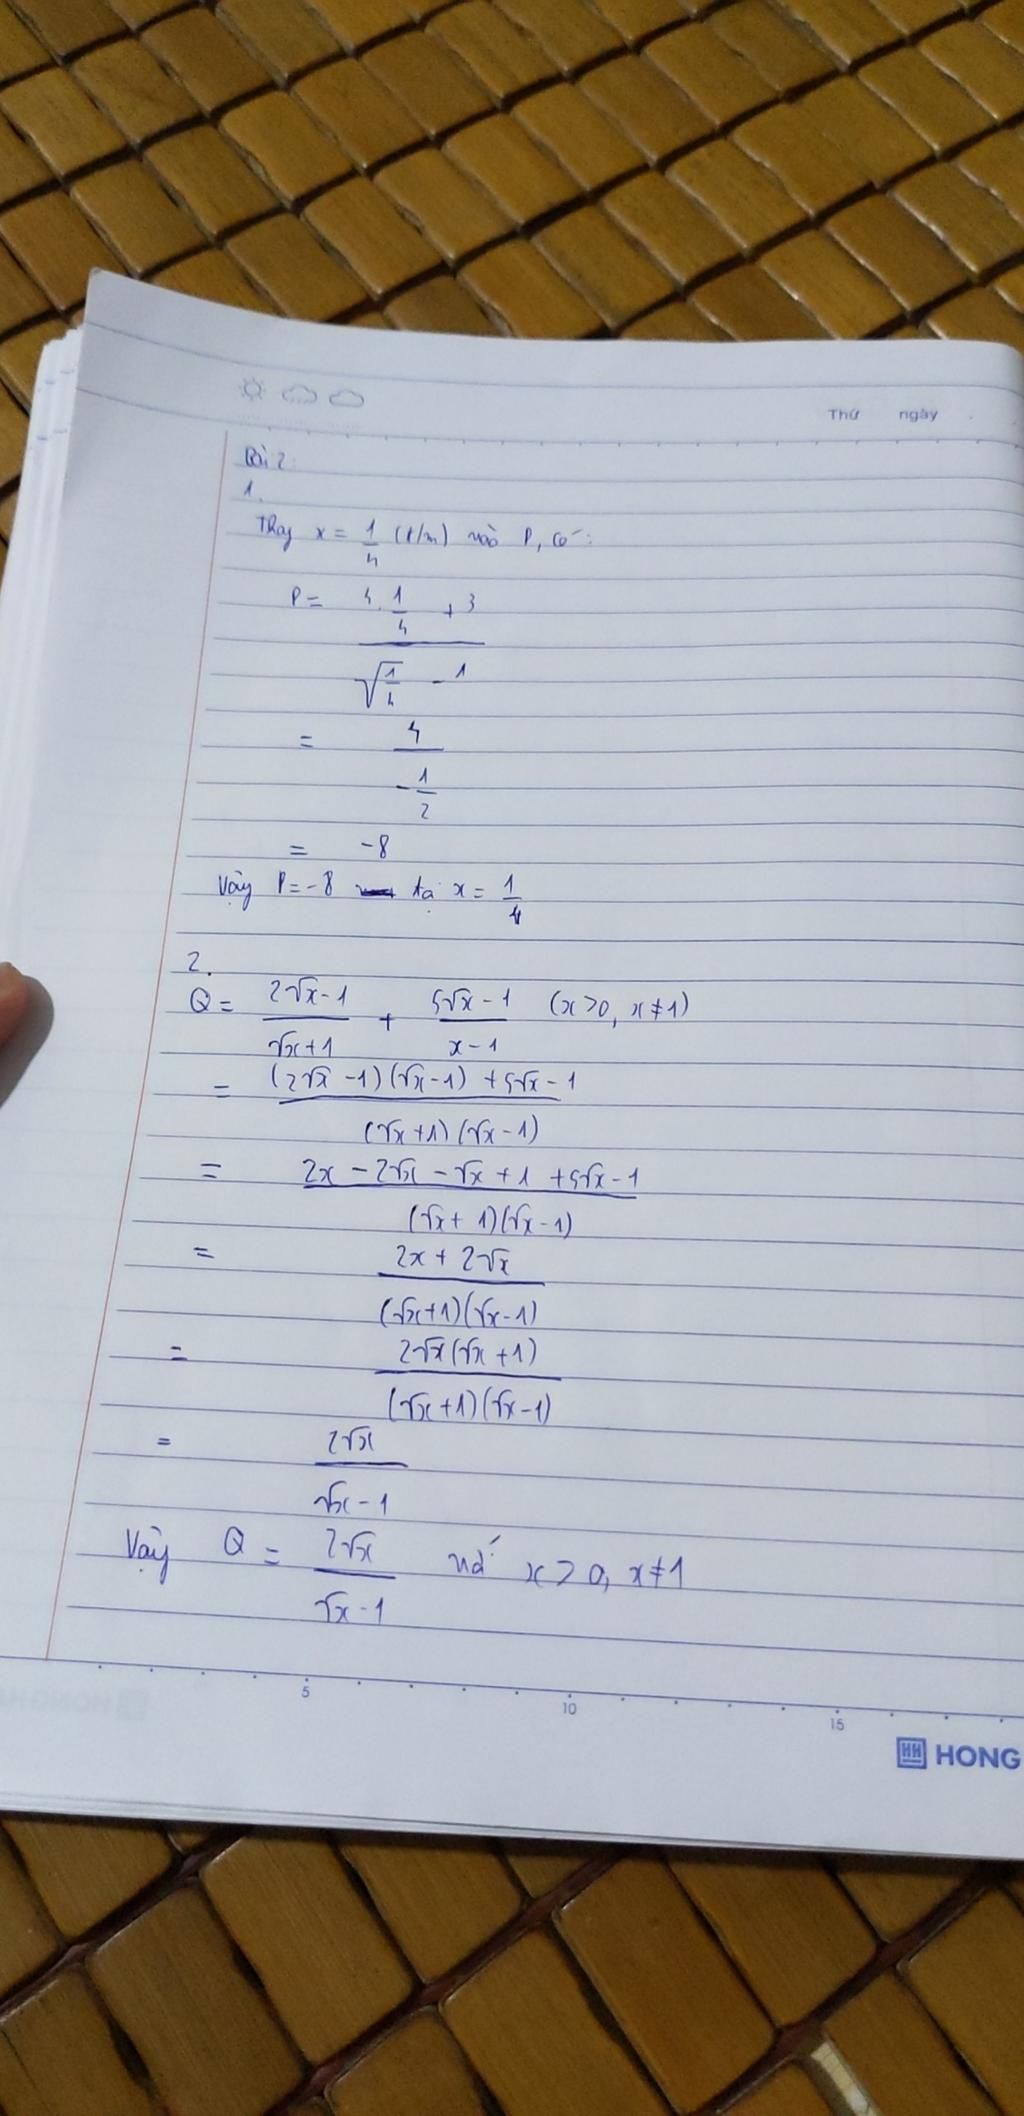 Thứ ngày
Bài 2:
1.
Thay x = 1/4 (t/m) vào P, có:
P = (4. 1/4 + 3)/(√(1/4) - 1)
= 4/(-1/2)
= -8
Vậy P = -8 tại x = 1/4
2.
Q = (2√x - 1)/(√x + 1) + (5√x - 1)/(x - 1) (x > 0, x ≠ 1)
= ((2√x - 1)(√x - 1) + 5√x - 1)/((√x + 1)(√x - 1))
= (2x - 2√x - √x + 1 + 5√x - 1)/((√x + 1)(√x - 1))
= (2x + 2√x)/((√x + 1)(√x - 1))
= (2√x(√x + 1))/((√x + 1)(√x - 1))
= 2√x/(√x - 1)
Vậy Q = 2√x/(√x - 1) với x > 0, x ≠ 1
5 10 15
HONG